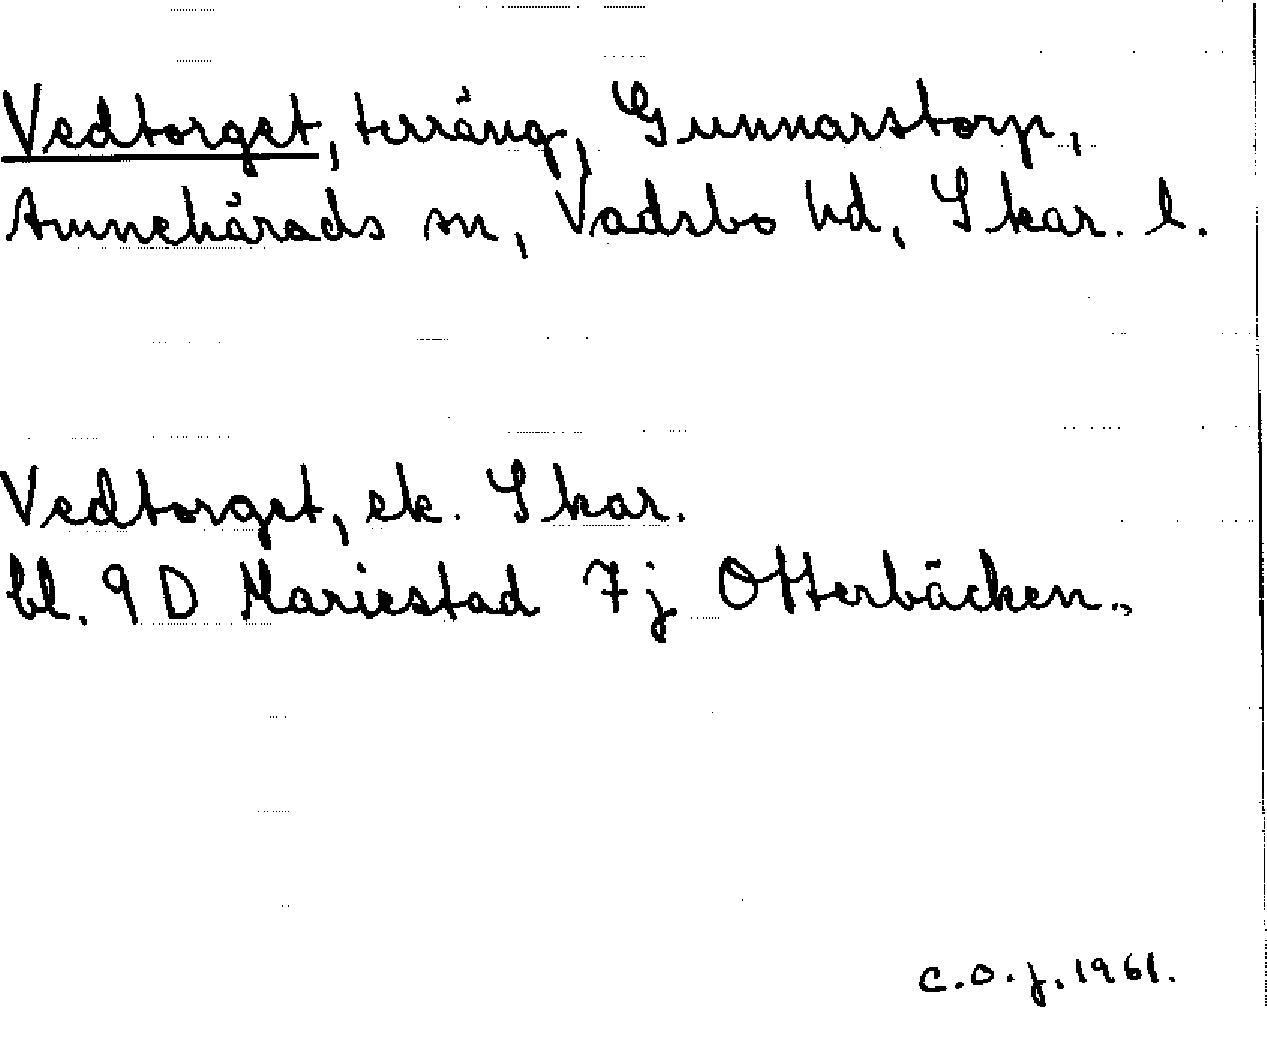 Vedtorget, terräng, Gunnarstorp,
Amnehärads sn, Vadsbo hd, Skar. l.
Vedtorget, ek. Skar.
bl. 9 D Mariestad 7j Otterbäcken.
c.o.j. 1961.